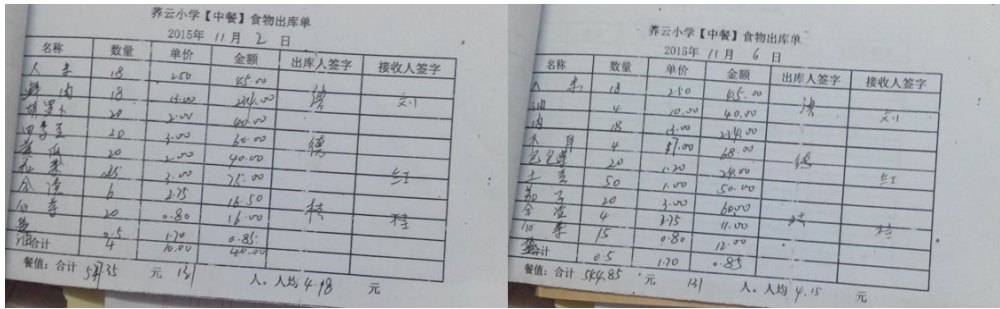 荞云小学【中餐】食物出库单
2015年 11月 2 日
名称 数量 单价 金额 出库人签字 接收人签字
大米 18 2.50 45.00
肉 18 13.00 234.00 刘
胡罗卜 20 2.00 40.00
四季豆 20 3.00 60.00 德
黄瓜 20 2.00 40.00
25 3.00 75.00 红
6 2.75 16.50
白菜 20 0.80 16.00 桂
盐 0.5 1.70 0.85
油 合计 4 10.00 40.00
餐值:合计 567.35 元 131 人。人均 4.18 元
荞云小学【中餐】食物出库单
2015年 11月 6 日
名称 数量 单价 金额 出库人签字 接收人签字
大米 18 2.50 45.00
油 4 10.00 40.00 刘
肉 18 13.00 234.00
木耳 4 17.00 68.00 德
20 1.20 24.00 红
土豆 50 1.00 50.00
茄子 20 3.00 60.00
4 2.75 11.00
白菜 15 0.80 12.00
盐 合计 0.5 1.70 0.85
餐值:合计 544.85 元 131 人。人均 4.15 元